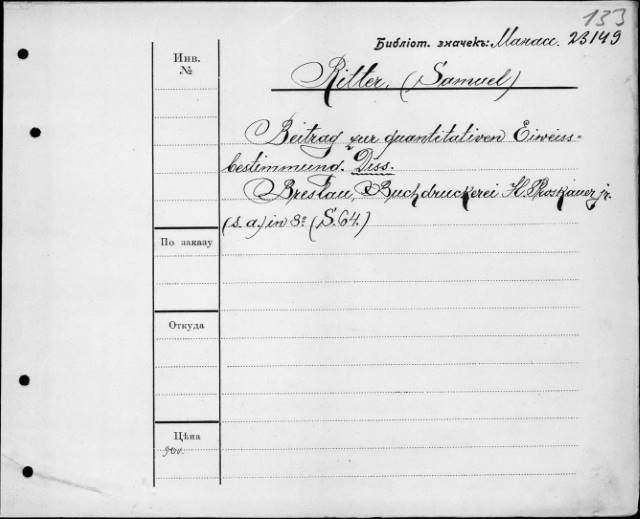 133
Библіот. значекъ: Манасс. 23149
Инв.
№
Ritter, (Samuel)
Beitrag zur quantitativen Eiweiss-
bestimmund. Diss.
Breslau, Buchdruckerei H. Proskauer jr.
(s. a.) in 8º (S. 64.)
По заказу
Откуда
Цѣна